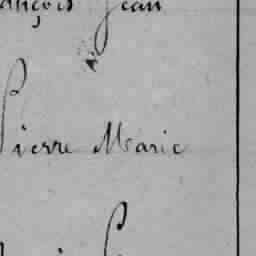 ançois Jean
Pierre Marie